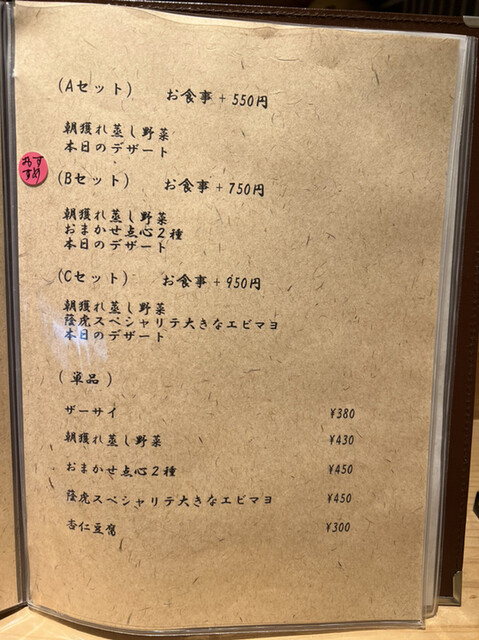 (Aセット) お食事+550円
朝獲れ蒸し野菜
本日のデザート
おすすめ
(Bセット) お食事+750円
朝獲れ蒸し野菜
おまかせ点心2種
本日のデザート
(Cセット) お食事+950円
朝獲れ蒸し野菜
陰虎スペシャリテ大きなエビマヨ
本日のデザート
(単品)
ザーサイ ¥380
朝獲れ蒸し野菜 ¥430
おまかせ点心2種 ¥450
陰虎スペシャリテ大きなエビマヨ ¥450
杏仁豆腐 ¥300